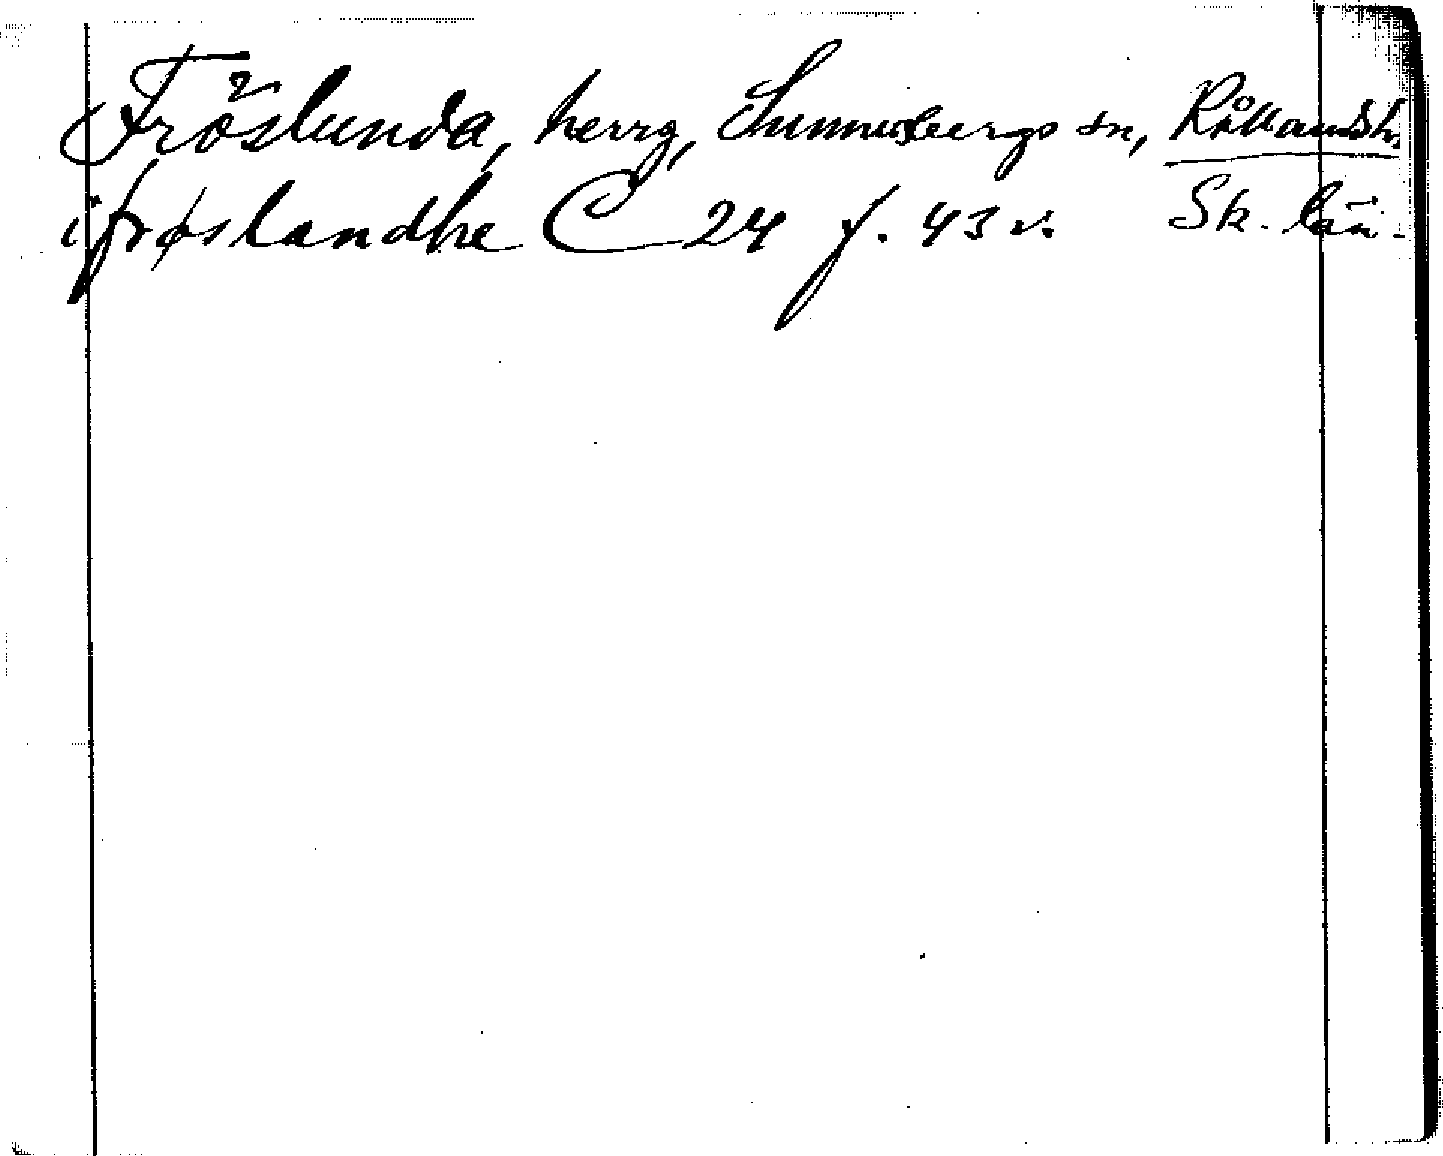 Fröslunda, herrg, Sunnersbergs sn, Kållandsh.
i frøslandhe C 24 f. 43 v. Sk. län.